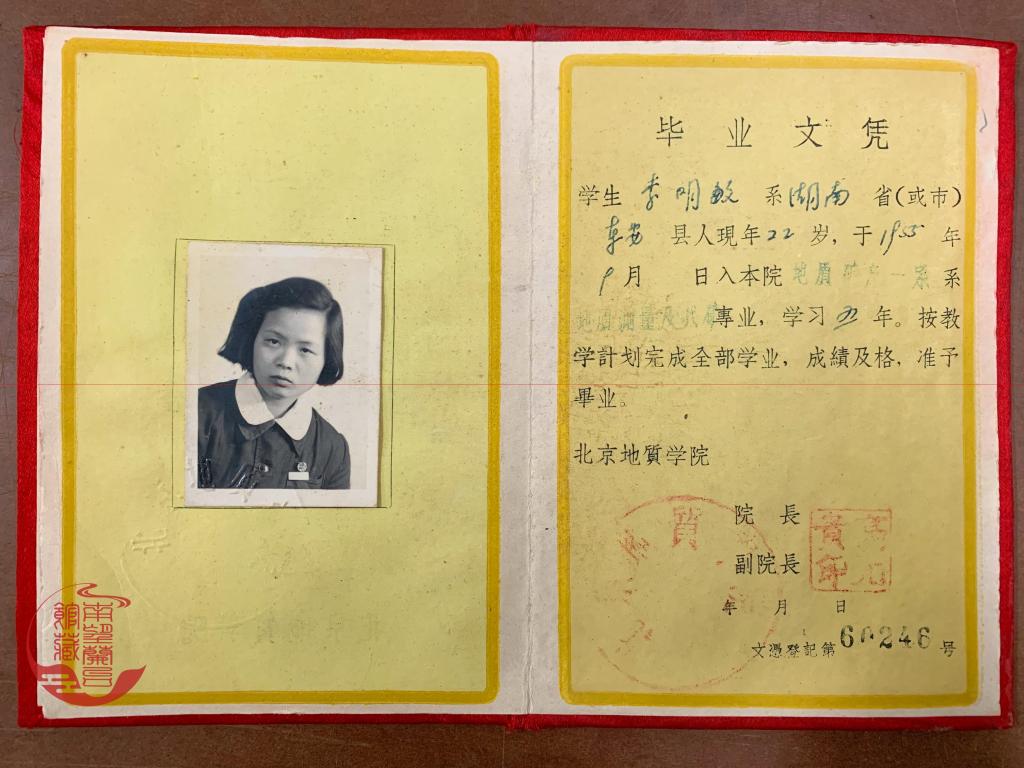 毕业文凭
学生 李明敏 系 湖南 省(或市)
东安 县人現年 22 岁，于 1955 年
9 月 日入本院 地質 一系 系
地質測量及找礦 専业，学习 五 年。按教
学計划完成全部学业，成績及格，准予
畢业。
北京地質学院
院長
副院長
年 月 日
文憑登記第 60246 号
質
南望蘭台
館藏